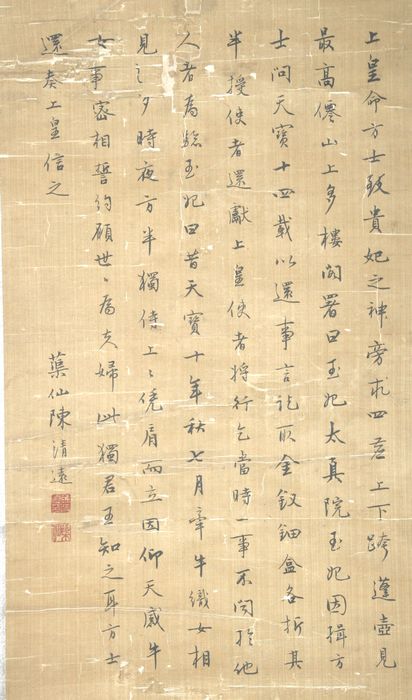 上皇命方士致貴妃之神旁求四虛上下跨蓬壺見
最高僊山上多樓閣署曰玉妃太真院玉妃因揖方
士問天寶十四載以還事言訖取金釵鈿盒各折其
半授使者還獻上皇使者將行乞當時一事不聞於他
人者為驗玉妃曰昔天寶十年秋七月牽牛織女相
見之夕時夜方半獨侍上〻憑肩而立因仰天感牛
女事密相誓約願世〻為夫婦此獨君王知之耳方士
還奏上皇信之
蕖仙陳清遠